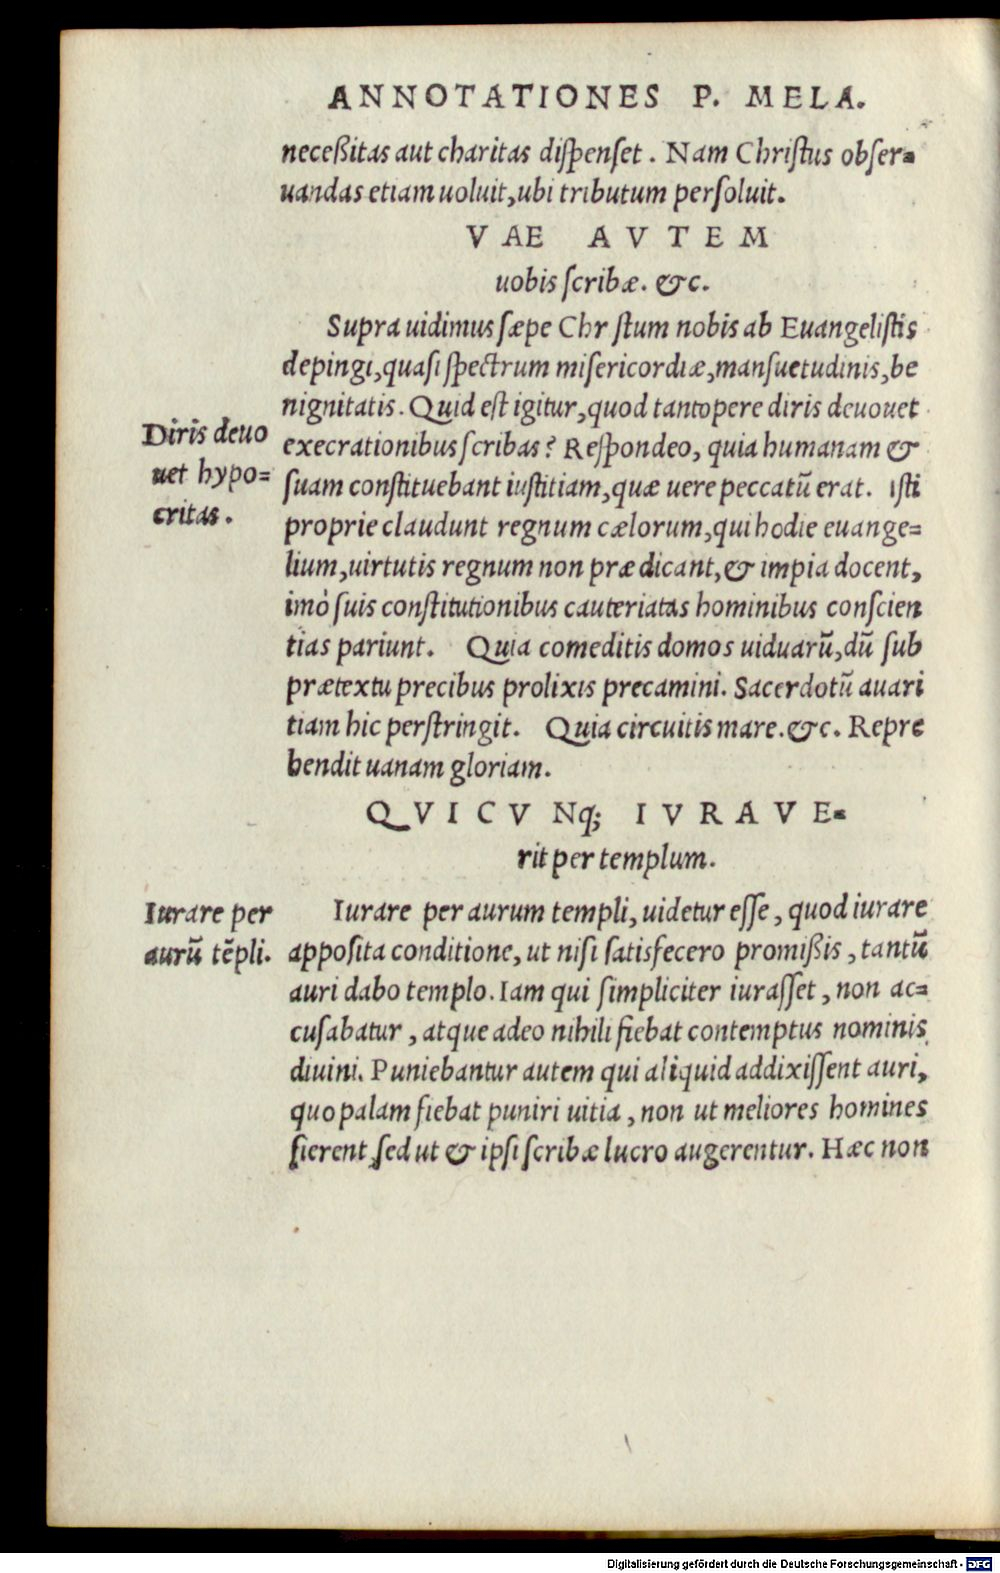 ANNOTATIONES P. MELA.
neceßitas aut charitas diſpenſet. Nam Chriſtus obſer=
uandas etiam uoluit, ubi tributum perſoluit.
VAE AVTEM
uobis ſcribæ. &c.
Supra uidimus ſæpe Chr ſtum nobis ab Euangeliſtis
depingi, quaſi ſpectrum miſericordiæ, manſuetudinis, be
nignitatis. Quid eſt igitur, quod tantopere diris deuouet
execrationibus ſcribas? Reſpondeo, quia humanam &
ſuam conſtituebant iuſtitiam, quæ uere peccatũ erat. iſti
proprie claudunt regnum cælorum, qui hodie euange=
lium, uirtutis regnum non prædicant, & impia docent,
imò ſuis conſtitutionibus cauteriatas hominibus conſcien
tias pariunt. Quia comeditis domos uiduarũ, dũ ſub
prætextu precibus prolixis precamini. Sacerdotũ auari
tiam hic perſtringit. Quia circuitis mare. &c. Repre
hendit uanam gloriam.
Diris deuo
uet hypo=
critas.
QVICVNq; IVRAVE=
rit per templum.
Iurare per aurum templi, uidetur eſſe, quod iurare
appoſita conditione, ut niſi ſatisfecero promißis, tantũ
auri dabo templo. Iam qui ſimpliciter iuraſſet, non ac=
cuſabatur, atque adeo nihili fiebat contemptus nominis
diuini. Puniebantur autem qui aliquid addixiſſent auri,
quo palam fiebat puniri uitia, non ut meliores homines
fierent, ſed ut & ipſi ſcribæ lucro augerentur. Hæc non
Iurare per
aurũ tẽpli.
Digitalisierung gefördert durch die Deutsche Forschungsgemeinschaft - DFG